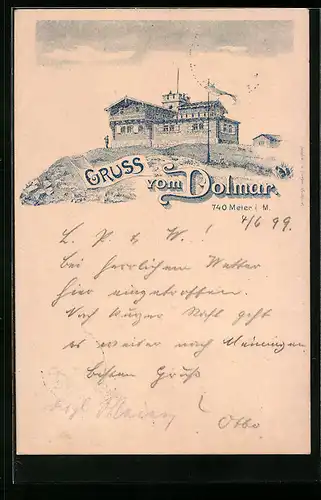 GRUSS
vom Dolmar.
740 Meter ü. M.
4/6 99.
L. P. & W. !
Bei herrlichem Wetter
hier eingetroffen.
Nach kurzer Rast geht
es weiter nach Meiningen
Besten Gruß
Otto